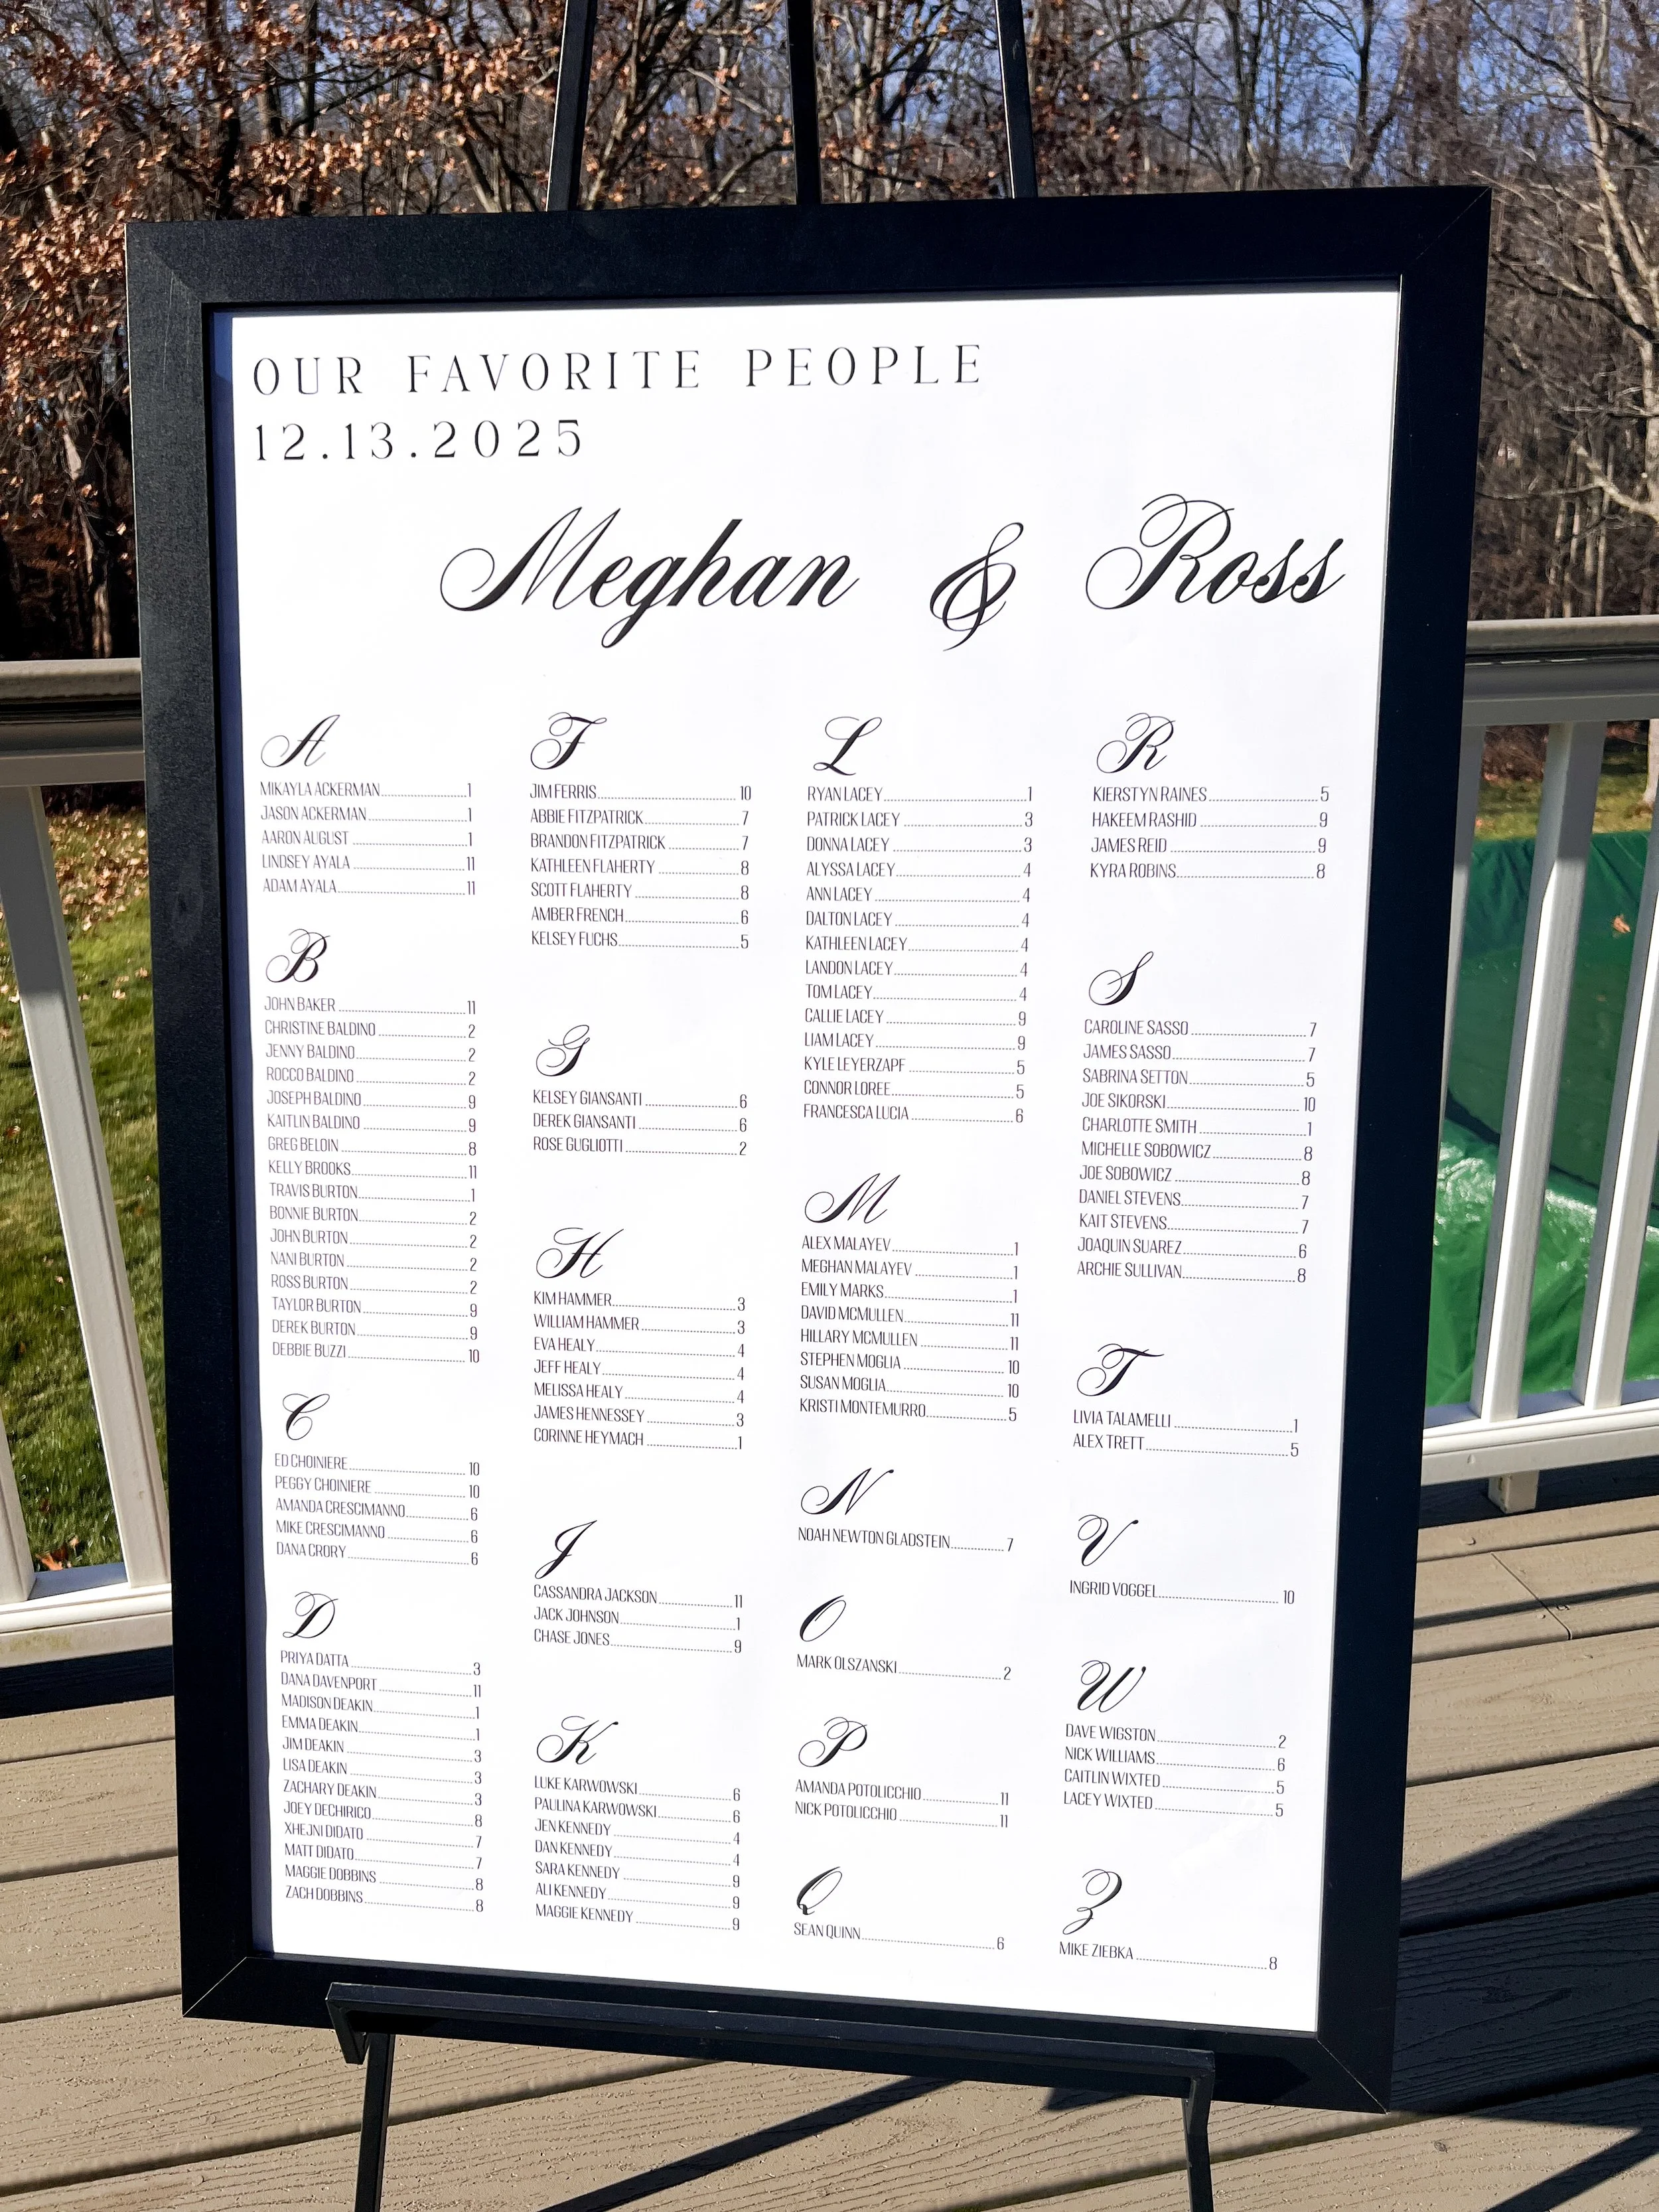 OUR FAVORITE PEOPLE
12.13.2025
Meghan & Ross
A
MIKAYLA ACKERMAN 1
JASON ACKERMAN 1
AARON AUGUST 1
LINDSEY AYALA 11
ADAM AYALA 11
B
JOHN BAKER 11
CHRISTINE BALDINO 2
JENNY BALDINO 2
ROCCO BALDINO 2
JOSEPH BALDINO 9
KAITLIN BALDINO 9
GREG BELOIN 8
KELLY BROOKS 11
TRAVIS BURTON 1
BONNIE BURTON 2
JOHN BURTON 2
NANI BURTON 2
ROSS BURTON 2
TAYLOR BURTON 9
DEREK BURTON 9
DEBBIE BUZZI 10
C
ED CHOINIERE 10
PEGGY CHOINIERE 10
AMANDA CRESCIMANNO 6
MIKE CRESCIMANNO 6
DANA CRORY 6
D
PRIYA DATTA 3
DANA DAVENPORT 11
MADISON DEAKIN 1
EMMA DEAKIN 1
JIM DEAKIN 3
LISA DEAKIN 3
ZACHARY DEAKIN 3
JOEY DECHIRICO 8
XHEJNI DIDATO 7
MATT DIDATO 7
MAGGIE DOBBINS 8
ZACH DOBBINS 8
F
JIM FERRIS 10
ABBIE FITZPATRICK 7
BRANDON FITZPATRICK 7
KATHLEEN FLAHERTY 8
SCOTT FLAHERTY 8
AMBER FRENCH 6
KELSEY FUCHS 5
G
KELSEY GIANSANTI 6
DEREK GIANSANTI 6
ROSE GUGLIOTTI 2
H
KIM HAMMER 3
WILLIAM HAMMER 3
EVA HEALY 4
JEFF HEALY 4
MELISSA HEALY 4
JAMES HENNESSEY 3
CORINNE HEYMACH 1
J
CASSANDRA JACKSON 11
JACK JOHNSON 1
CHASE JONES 9
K
LUKE KARWOWSKI 6
PAULINA KARWOWSKI 6
JEN KENNEDY 4
DAN KENNEDY 4
SARA KENNEDY 9
ALI KENNEDY 9
MAGGIE KENNEDY 9
L
RYAN LACEY 1
PATRICK LACEY 3
DONNA LACEY 3
ALYSSA LACEY 4
ANN LACEY 4
DALTON LACEY 4
KATHLEEN LACEY 4
LANDON LACEY 4
TOM LACEY 4
CALLIE LACEY 9
LIAM LACEY 9
KYLE LEYERZAPF 5
CONNOR LOREE 5
FRANCESCA LUCIA 6
M
ALEX MALAYEV 1
MEGHAN MALAYEV 1
EMILY MARKS 1
DAVID MCMULLEN 11
HILLARY MCMULLEN 11
STEPHEN MOGLIA 10
SUSAN MOGLIA 10
KRISTI MONTEMURRO 5
N
NOAH NEWTON GLADSTEIN 7
O
MARK OLSZANSKI 2
P
AMANDA POTOLICCHIO 11
NICK POTOLICCHIO 11
Q
SEAN QUINN 6
R
KIERSTYN RAINES 5
HAKEEM RASHID 9
JAMES REID 9
KYRA ROBINS 8
S
CAROLINE SASSO 7
JAMES SASSO 7
SABRINA SETTON 5
JOE SIKORSKI 10
CHARLOTTE SMITH 1
MICHELLE SOBOWICZ 8
JOE SOBOWICZ 8
DANIEL STEVENS 7
KAIT STEVENS 7
JOAQUIN SUAREZ 6
ARCHIE SULLIVAN 8
T
LIVIA TALAMELLI 1
ALEX TRETT 5
V
INGRID VOGGEL 10
W
DAVE WIGSTON 2
NICK WILLIAMS 6
CAITLIN WIXTED 5
LACEY WIXTED 5
Z
MIKE ZIEBKA 8